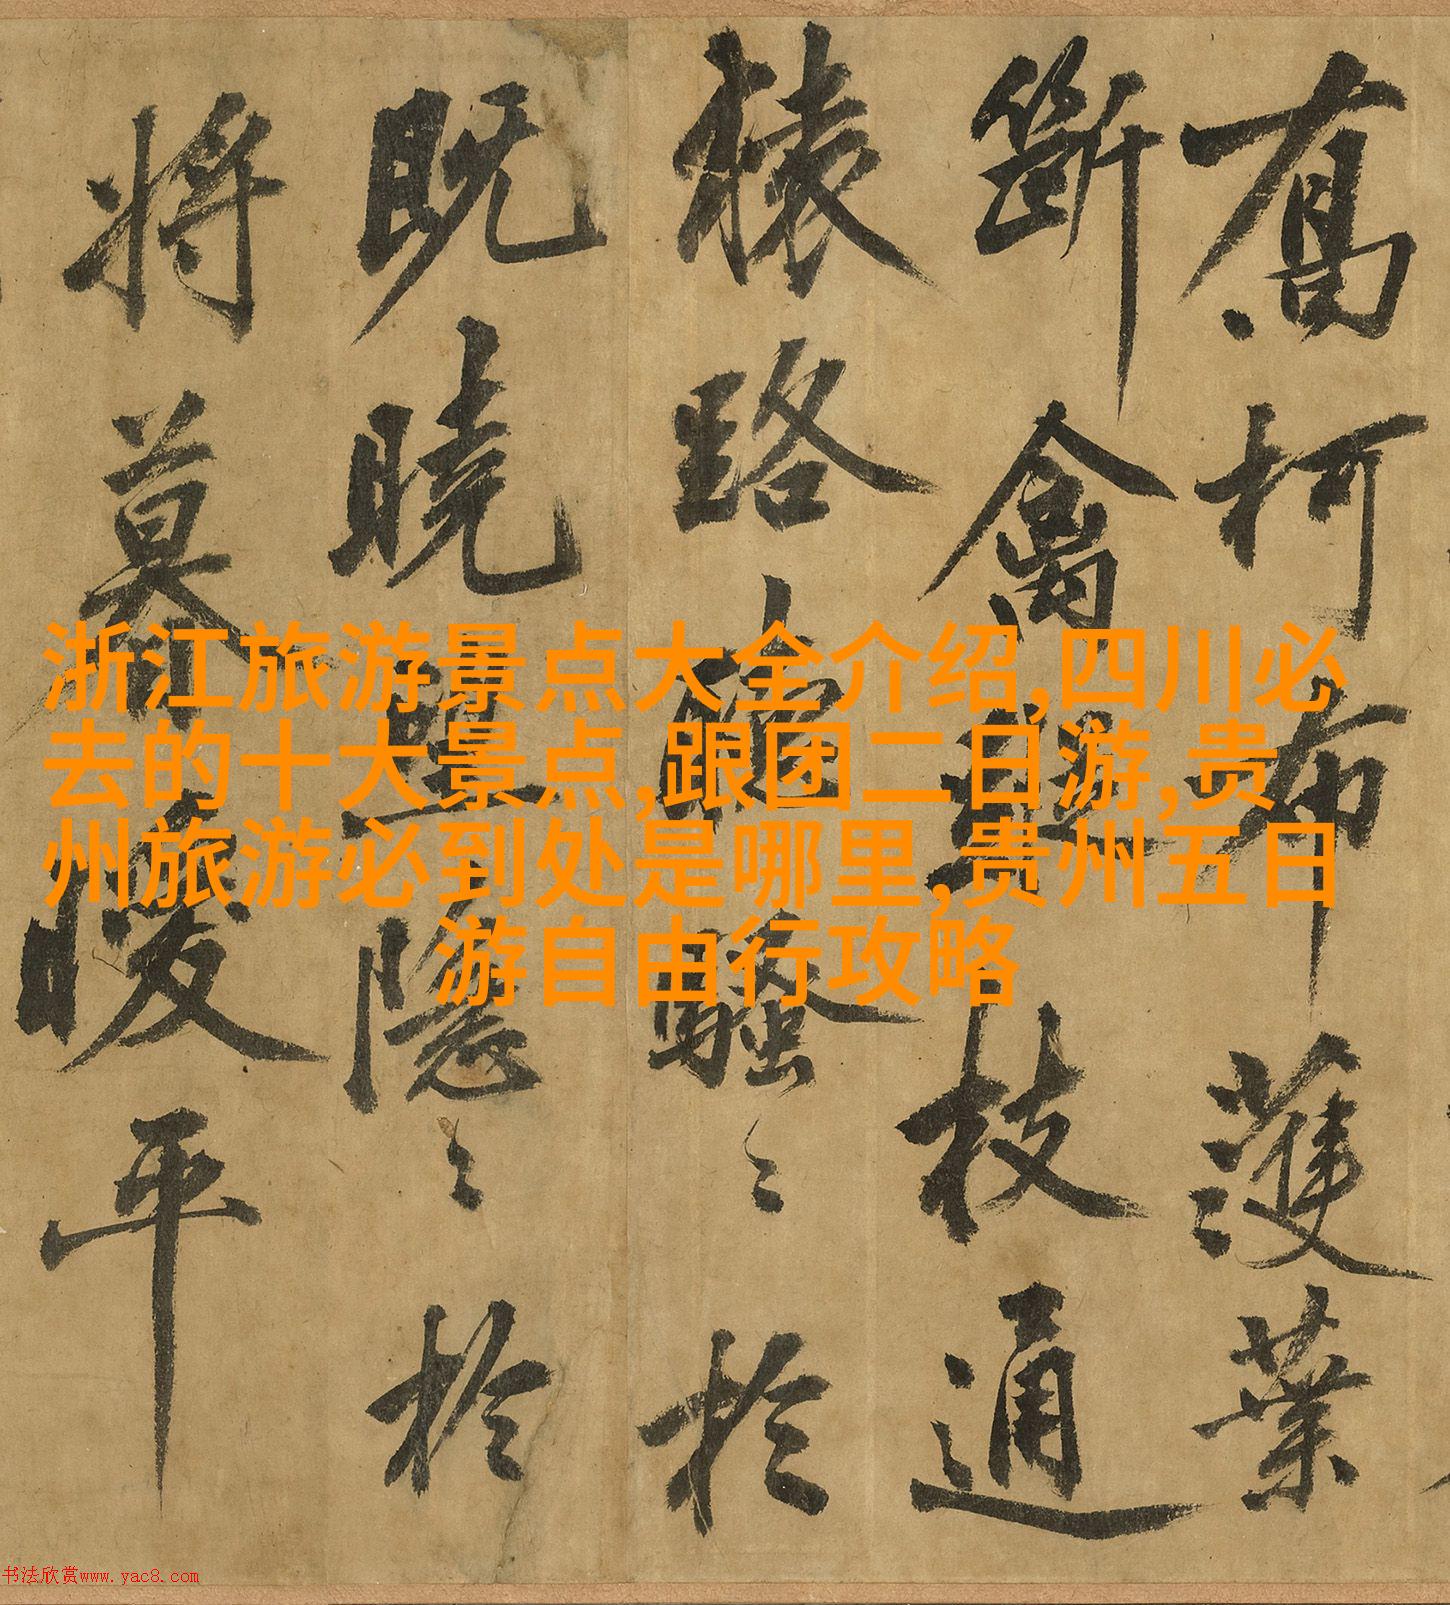 浙江旅游景点大全介绍,四川必
去的十大景点,跟团二日游,贵
州旅游必到处是哪里,贵州五日
游自由行攻略
喬柯布濩葉
斷禽枝通
猿路騷〻於
既曉隱〻於
將暮曖平
书法欣赏www.yac8.com